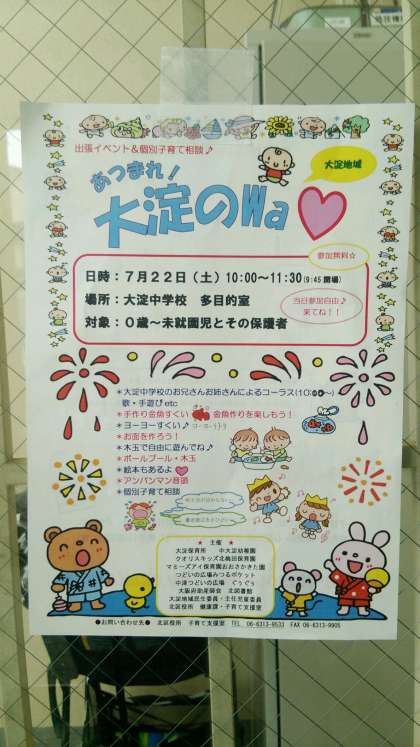 出張イベント&個別子育て相談♪
あつまれ！
大淀地域
大淀のWa
参加無料☆
日時：7月22日（土）10:00〜11:30（9:45開場）
場所：大淀中学校 多目的室
当日参加自由♪
来てね！！
対象：0歳〜未就園児とその保護者
＊大淀中学校のお兄さんお姉さんによるコーラス(10:
歌・手遊びetc
＊手作り金魚すくい 金魚作りを楽しもう！
＊ヨーヨーすくい♪
＊お面を作ろう！
＊木玉で自由に遊んでね♪
＊ボールプール・木玉
＊絵本もあるよ
＊アンパンマン音頭
＊個別子育て相談
★ 主催 ★
大淀保育所 中大淀幼稚園
クオリスキッズ北梅田保育園
マミーズアイ保育園おおさかきた園
つどいの広場みつるポケット
中津つどいの広場 ぐぅぐぅ
大阪府助産師会 北図書館
大淀地域民生委員・主任児童委員
北区役所 健康課・子育て支援室
●お問い合わせ先● 北区役所 子育て支援室 TEL 06-6313-9533 FAX 06-6313-9905